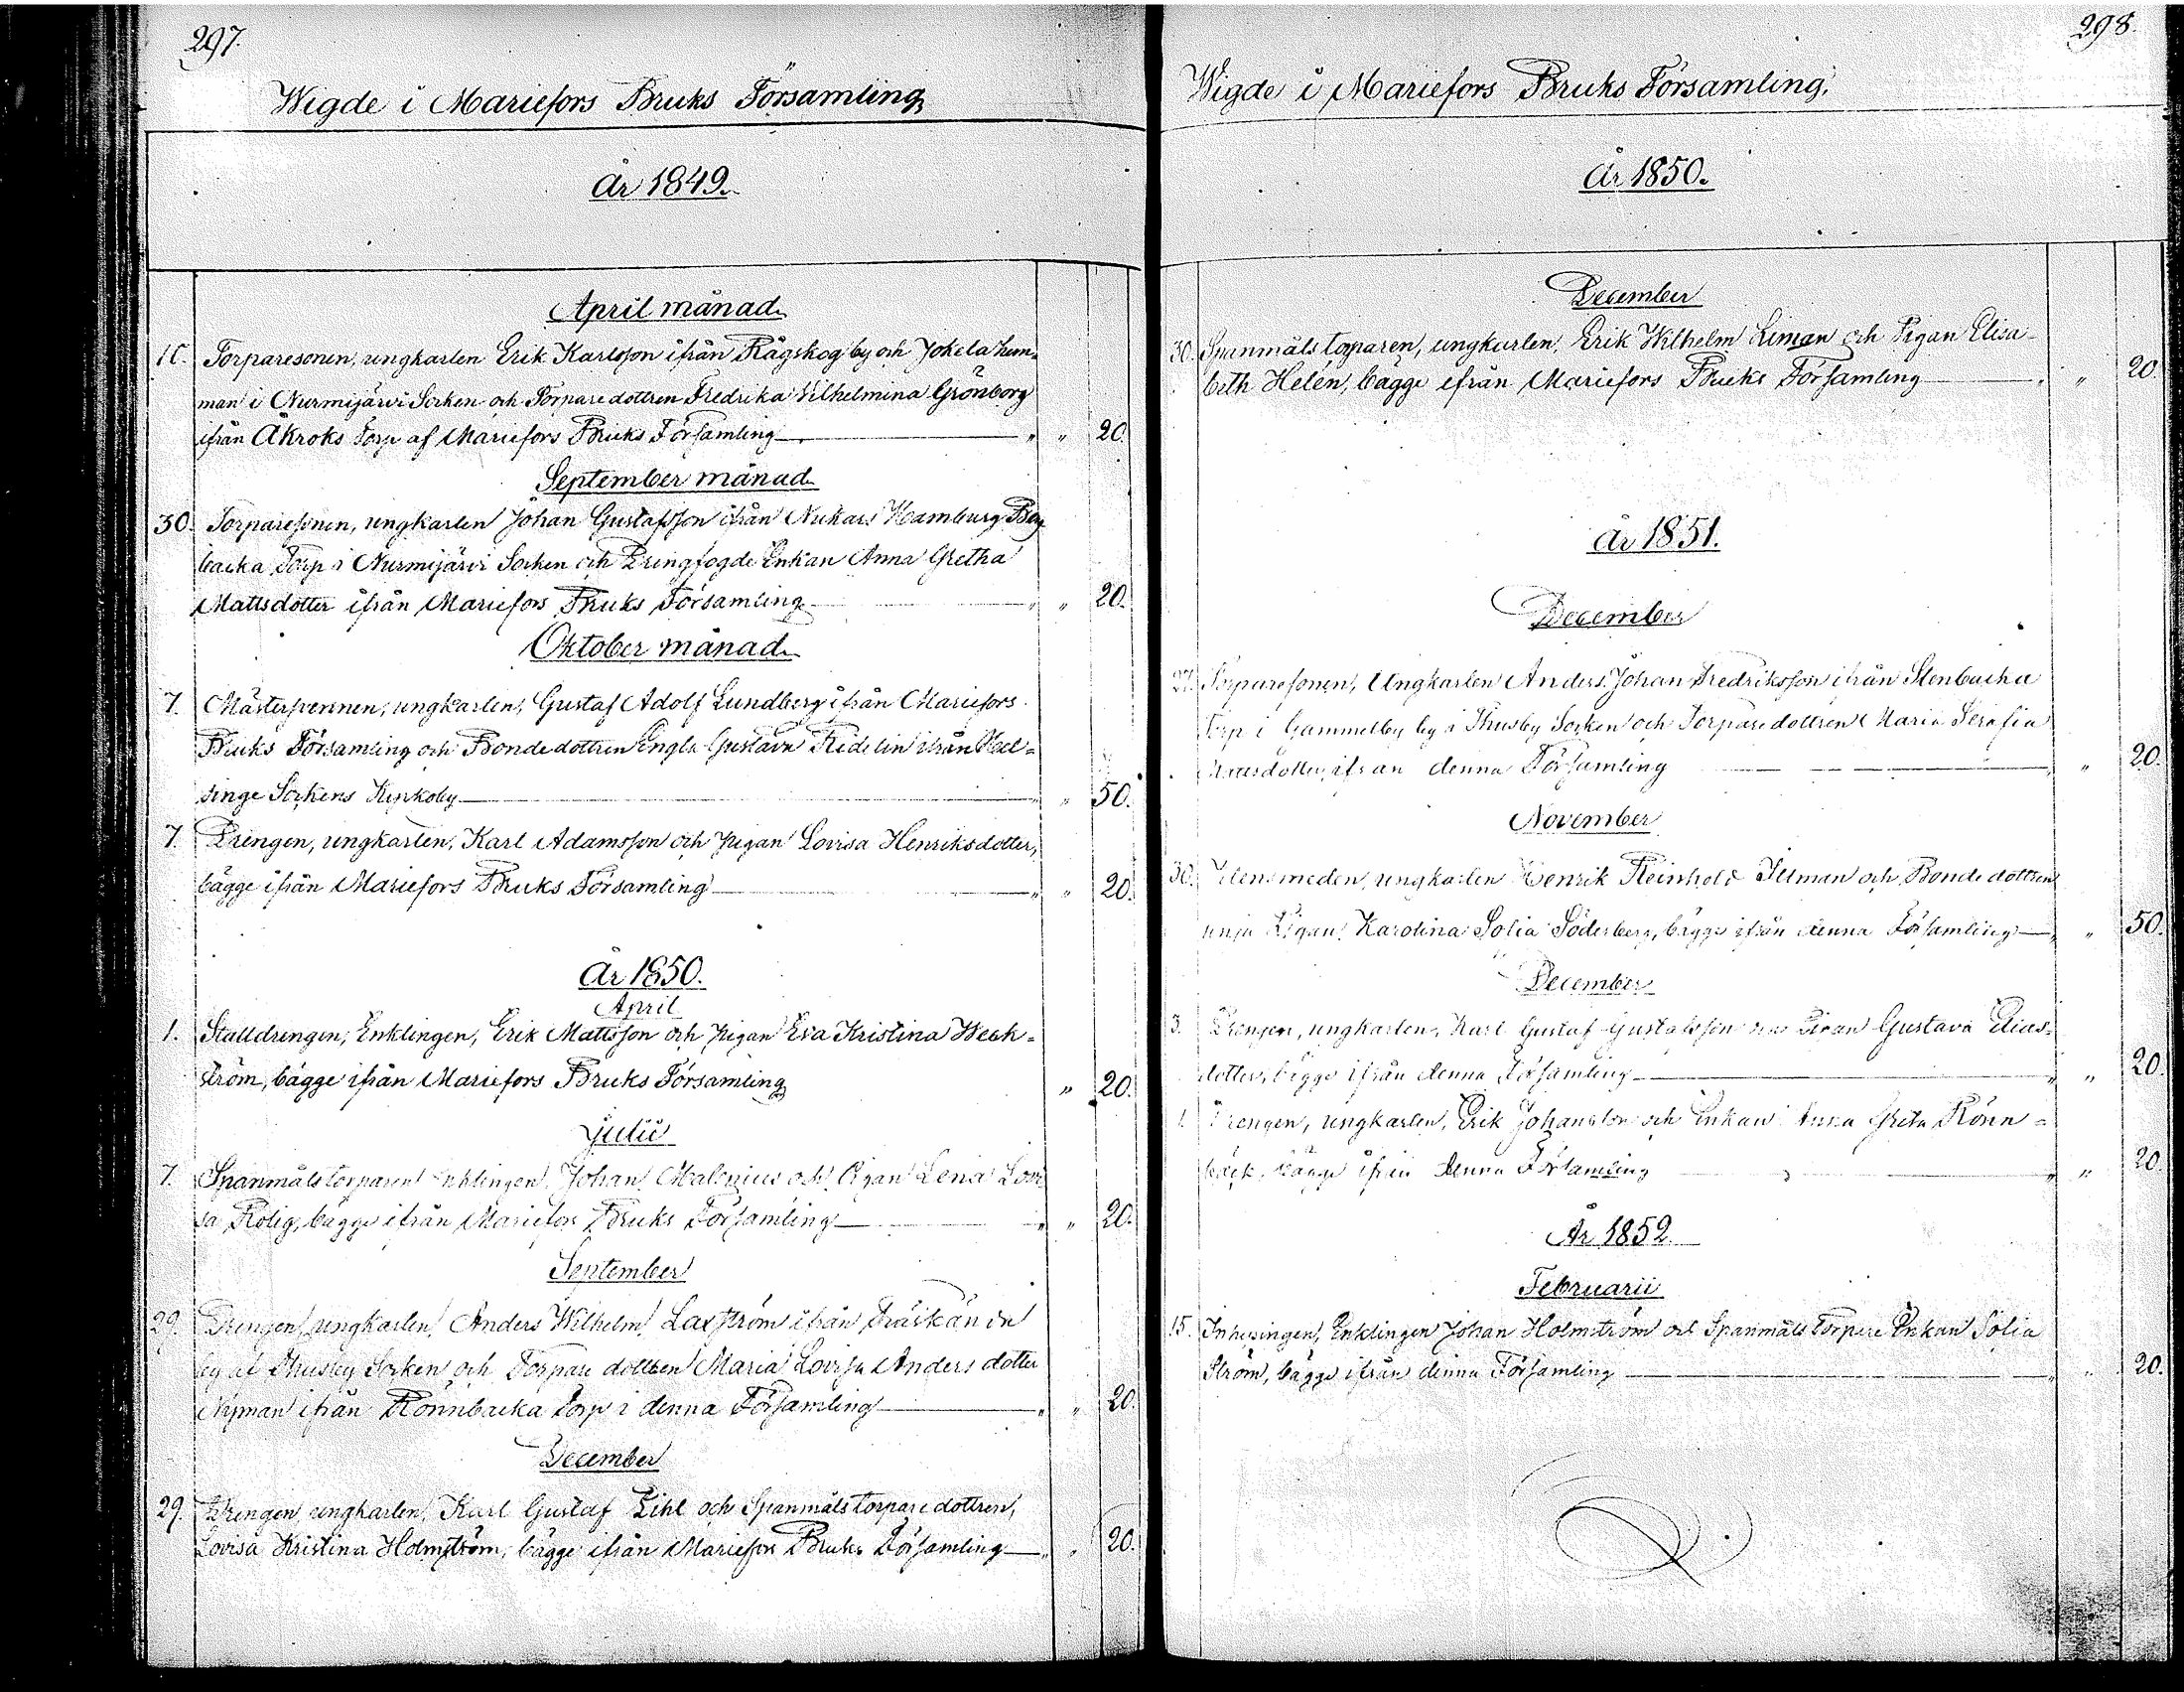 297.
Wigde i Mariefors Bruks Församling
År 1849.
April månad
Torparesonen, ungkarlen Erik Karlsson ifrån Rågskog by och Jokela hem=
man i Nurmijärvi Socken och Torparedottren Fredrika Wilhelmina Grönborg
ifrån Åkroks Torp af Mariefors Bruks Församling " " 20.
September månad
30. Torparesonen, ungkarlen Johan Gustafsson ifrån Nukars Hamburg
backa Torp i Nurmijärvi Socken och Drengfogde Enkan Anna Gretha
Mattsdotter ifrån Mariefors Bruks Församling " " 20.
Oktober månad
7. Mästersvennen, ungkarlen, Gustaf Adolf Lundberg ifrån Mariefors
Bruks Församling och Bondedottren Engla Gustava ifrån Hel=
singe Sockens Kyrkoby " " 50.
7. Drengen, ungkarlen, Karl Adamsson och pigan Lovisa Henriksdotter,
bägge ifrån Mariefors Bruks Församling " " 20.
År 1850.
April
1. Stalldrengen, Enklingen, Erik Mattsson och pigan Eva Kristina Weck=
ström, bägge ifrån Mariefors Bruks Församling " 20.
Julii
7. Spanmålstorparen Enklingen, Johan Malenius och Pigan Lena Lovi
sa Rolig, bägge ifrån Mariefors Bruks Församling " " 20.
September
29. Drengen, ungkarlen, Anders Wilhelm Laxström ifrån Träskända
by af Thusby Socken och Torparedottren Maria Lovisa Andersdotter
Nyman ifrån Rönnbacka Torp i denna Församling " " 20.
December
29. Drengen, ungkarlen, Karl Gustaf Lihl och Spanmålstorparedottren,
Lovisa Kristina Holmström, bägge ifrån Mariefors Bruks Församling " " 20.
298.
Wigde i Mariefors Bruks Församling.
År 1850.
December
30. Spanmålstorparen, ungkarlen, Erik Wilhelm Liman och Pigan Elisa-
beth Helén, bägge ifrån Mariefors Bruks Församling " " 20.
År 1851.
December
27. Torparesonen, Ungkarlen Anders Johan Fredriksson ifrån Stenbacka
Torp i Gammelby by i Thusby Socken och Torparedottren Maria Serafia
Mattsdotter, ifrån denna Församling " " 20.
November
30. ungkarlen Henrik Reinhold Illman och Bondedottren
Pigan, Karolina Sofia Söderberg, bägge ifrån denna Församling " " 50.
December
3. Drengen, ungkarlen, Karl Gustaf Gustafsson och Pigan Gustava Elias=
dotter, bägge ifrån denna Församling " " 20.
Drengen, ungkarlen, Erik Johansson och Enkan Anna Greta Rönn=
bäck, bägge ifrån denna Församling " " 20.
År 1852.
Februarii
15. Inhysingen, Enklingen Johan Holmström och Spanmåls Torpare Enkan Sofia
Ström, bägge ifrån denna Församling " " 20.